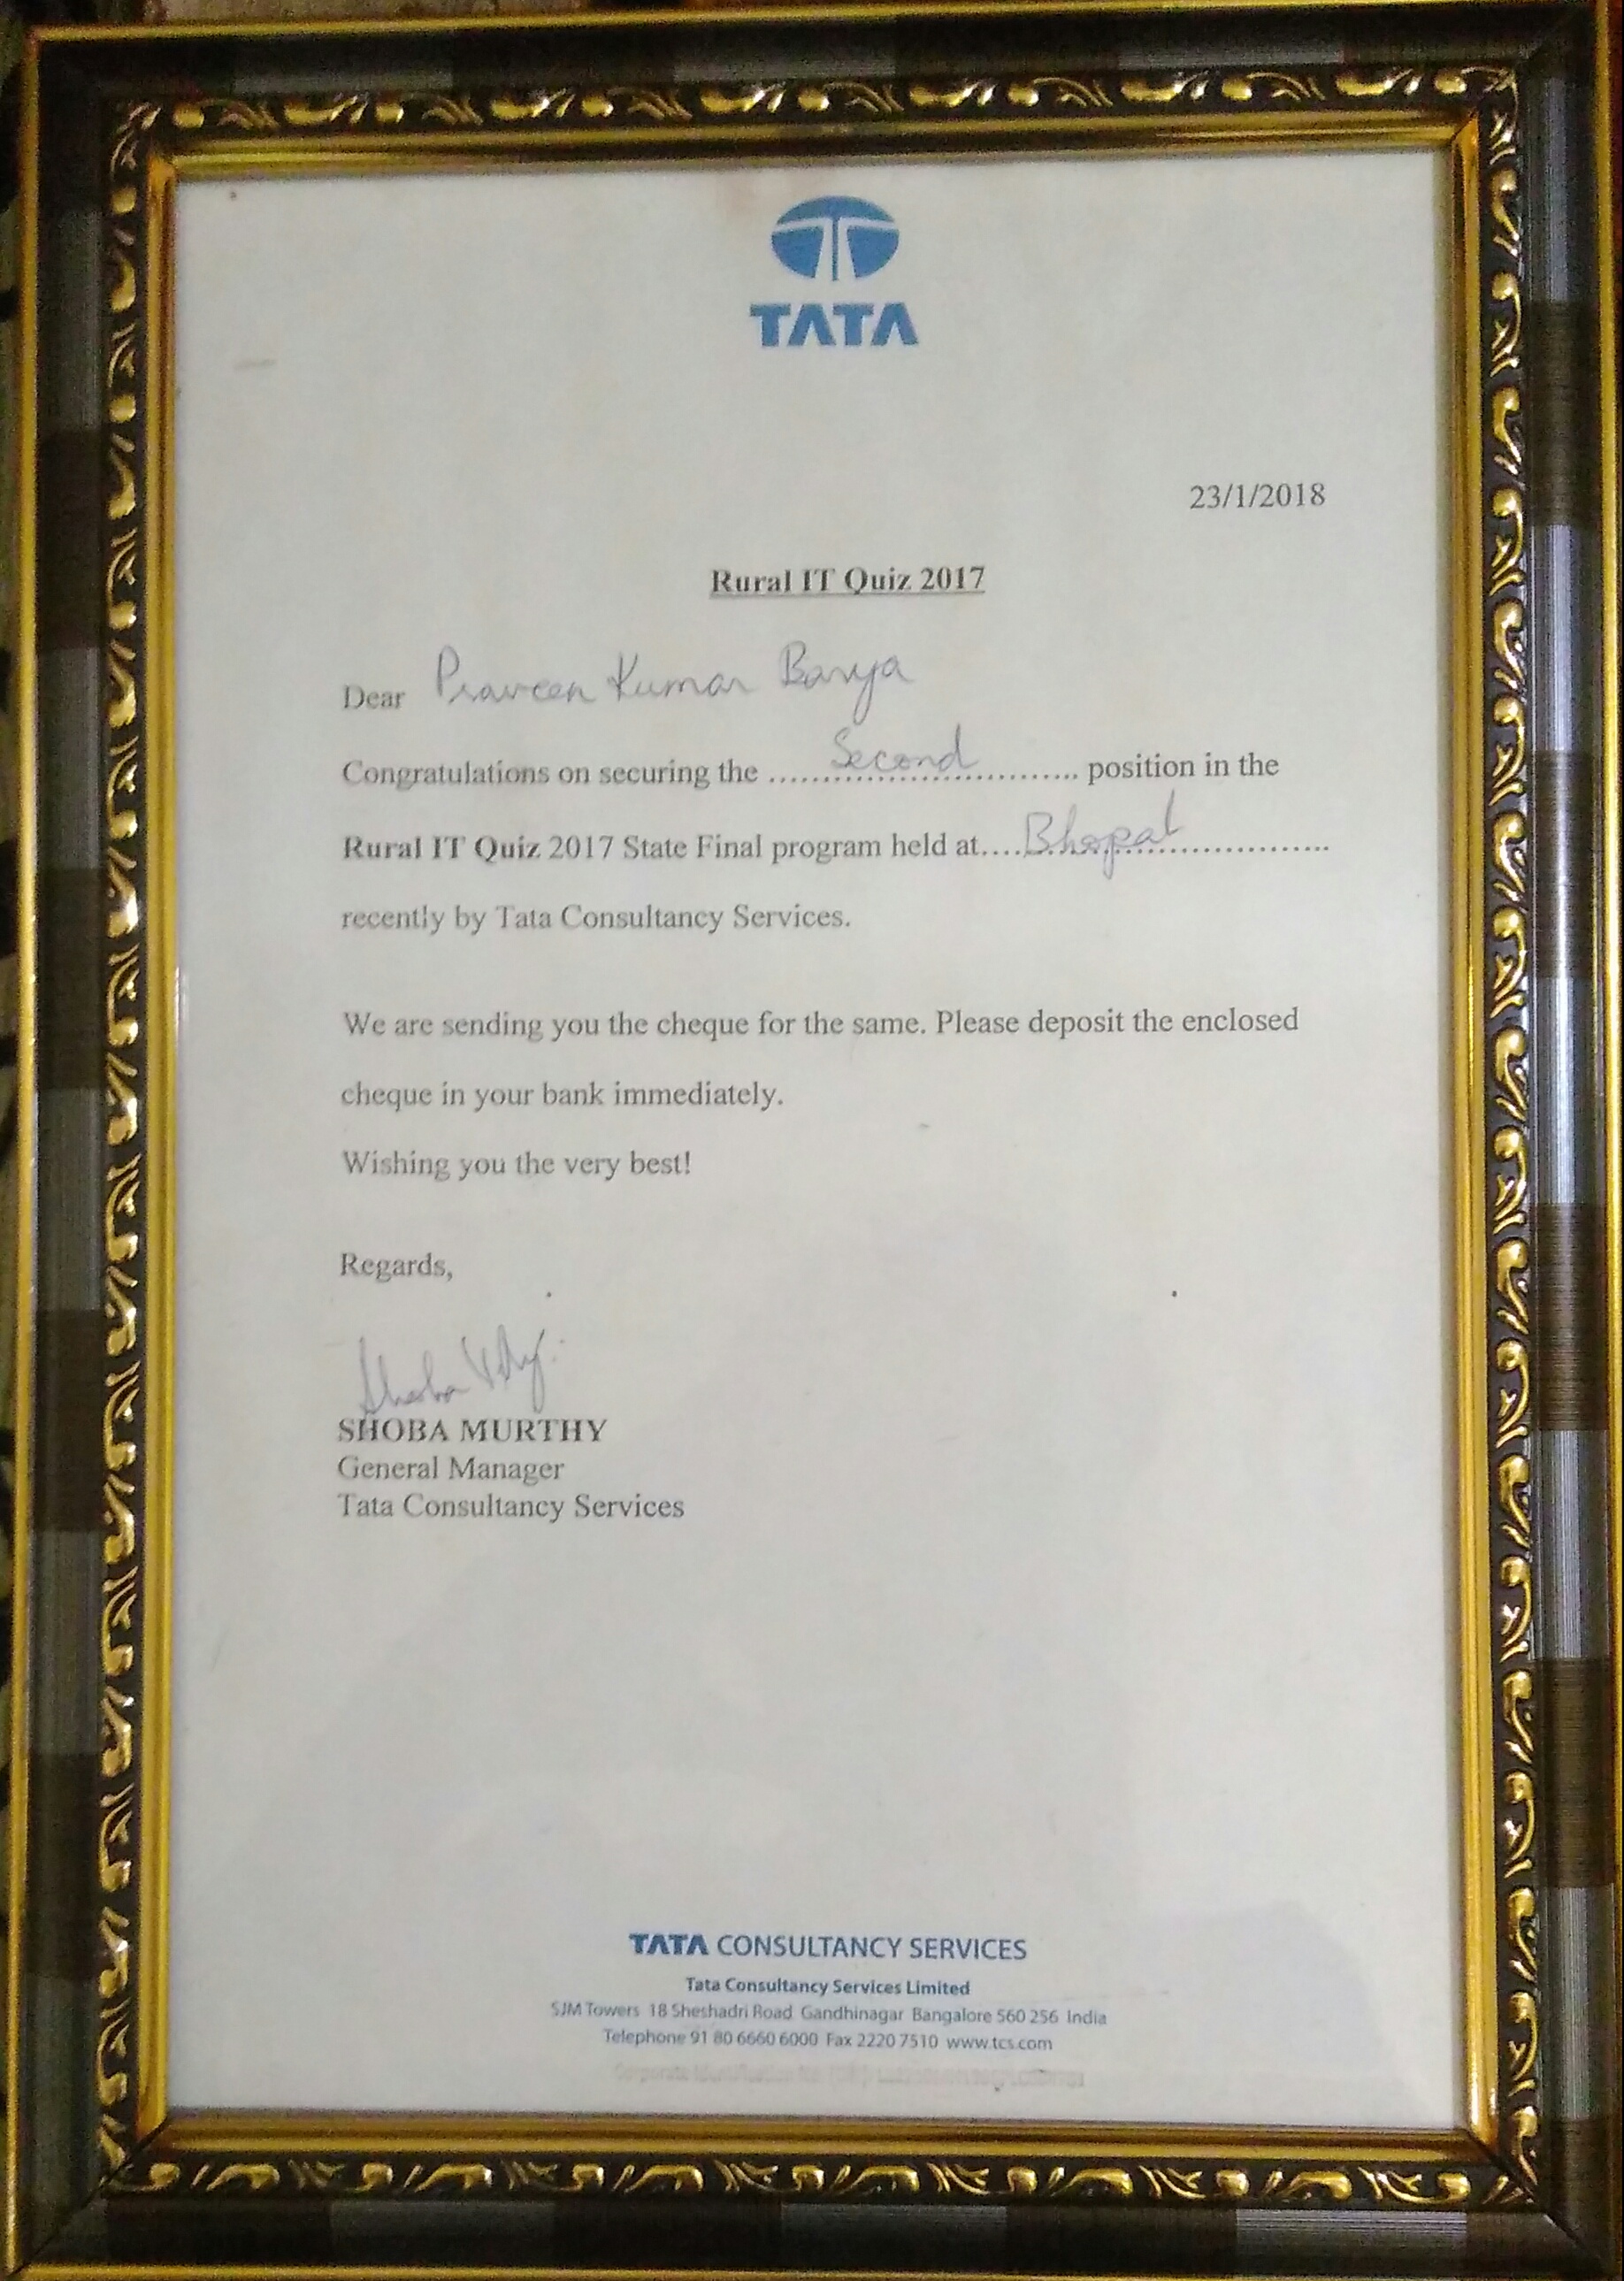 TATA
23/1/2018
Rural IT Quiz 2017
Dear Praveen Kumar Barya
Congratulations on securing the ......Second...... position in the
Rural IT Quiz 2017 State Final program held at....Bhopal..............
recently by Tata Consultancy Services.
We are sending you the cheque for the same. Please deposit the enclosed
cheque in your bank immediately.
Wishing you the very best!
Regards,
SHOBA MURTHY
General Manager
Tata Consultancy Services
TATA CONSULTANCY SERVICES
Tata Consultancy Services Limited
SJM Towers 18 Sheshadri Road Gandhinagar Bangalore 560 256 India
Telephone 91 80 6660 6000 Fax 2220 7510 www.tcs.com